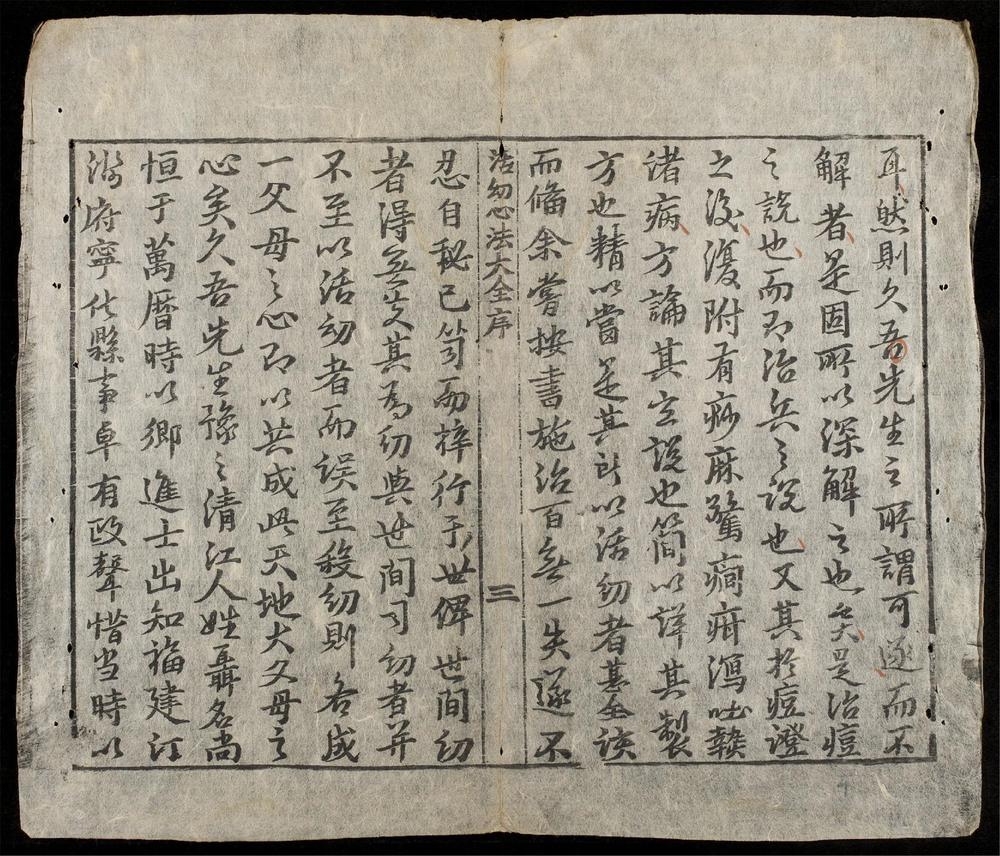 耳然則久吾先生之所謂可遂而不
解者是固所以深解之也矣是治痘
之說也而即治兵之說也又其於痘證
之後復附有痧麻驚癎疳瀉吐
諸病方論其立說也簡以詳其製
方也精以當是其所以活幼者甚
而偹余嘗按書施治百無一失遂不
活幼心法大全序
三
忍自秘已笥而梓行于世俾世間幼
者得無夭其為幼與世間司幼者并
不至以活幼者而誤至殺幼則各成
一父母之心即以共成此天地大父母之
心矣久吾先生豫之清江人姓聶名尚
恒于萬曆時以鄉進士出知福建汀
府寧化縣事卓有政聲惜当時以